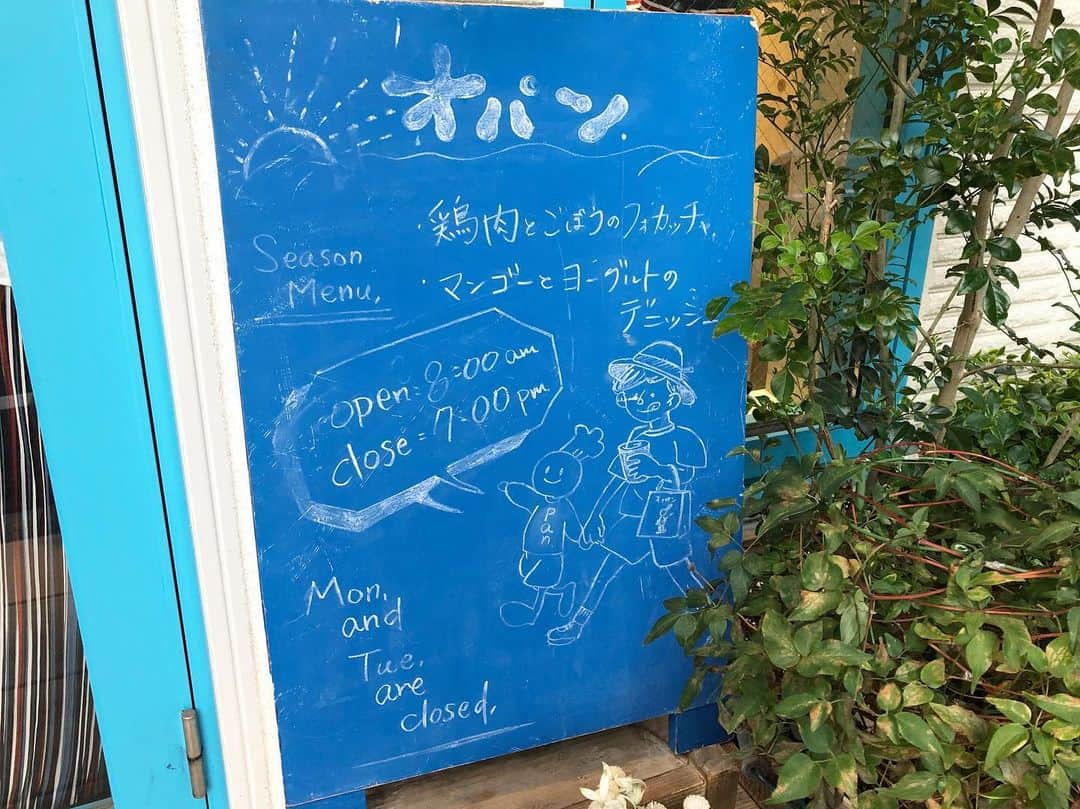 オパン
・鶏肉とごぼうのフォカッチャ
Season
Menu.
・マンゴーとヨーグルトの
デニッシュ
open = 8:00 am
close = 7:00 pm
pan
Mon.
and
Tue.
are
closed.